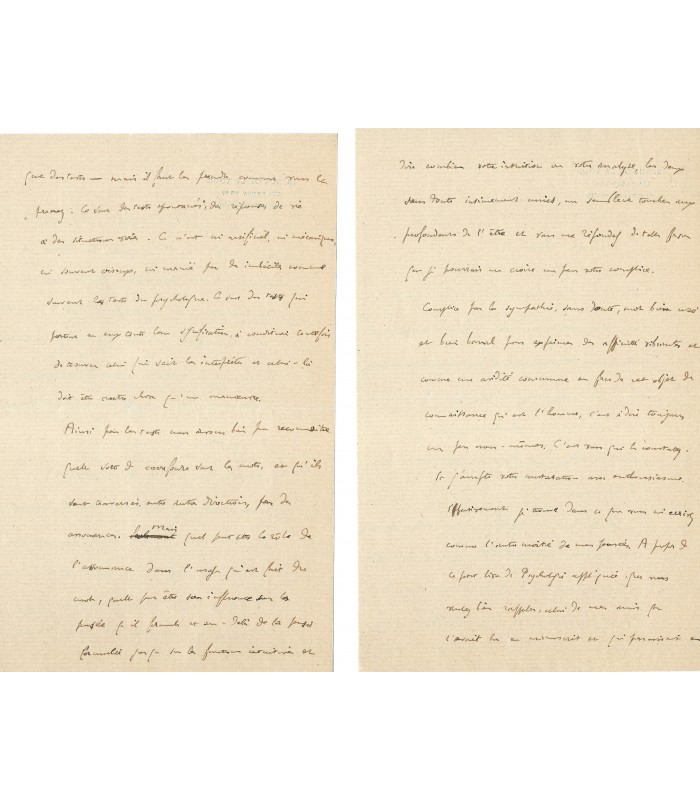 que des tests — mais il faut les prendre comme vous les
prenez. Ce sont des tests spontanés, des réponses de vie
à des situations vraies. Ce n'est ni artificiel, ni mécanique,
ni souvent ni manié par des imbéciles comme
souvent les tests du psychologue. Ce sont des qui
portent en eux toute leur signification, à condition toutefois
de trouver celui qui sait les interpréter et celui-là
doit être autre chose qu'un manœuvre.
Ainsi pour les tests nous avons bien pu reconnaître
quelle sorte de carrefours sont les mots, et qu'ils
sont traversés, entre autres directions, par des
assonances. Mais quel peut être le rôle de
l'assonance dans l'usage qui est fait des
mots, quelle peut être son influence sur la
pensée qu'il formule et au-delà de la pensée
formulée jusque sur les fonctions intuitives et
dire combien votre intuition ou votre analyse, les deux
sans doute intimement unies, me semblent toucher aux
profondeurs de l'être et vous me répondez de telle façon
que je pourrais me croire un peu votre complice.
Complice par la sympathie, sans doute, mot bien usé
et bien banal pour exprimer des affinités vibrantes et
comme une avidité commune en face de cet objet de
connaissance qu'est l'homme, c'est à dire toujours
un peu nous-mêmes. C'est vous qui le constatez.
Et j'accepte votre constatation avec enthousiasme.
Effectivement je trouve dans ce que vous m'écrivez
comme l'autre moitié de mes pensées. A propos de
ce pauvre livre de Psychologie appliquée que vous
voulez bien rappeler, celui de mes amis qui
l'avait lu en manuscrit et qui